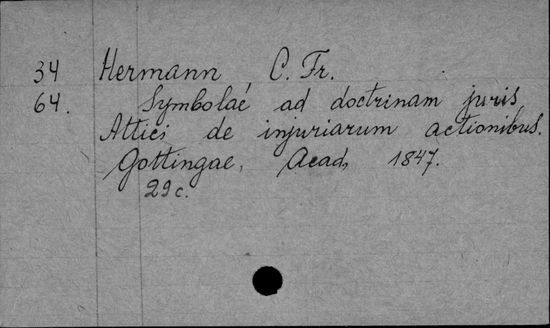 34 Hermann, C. Fr.
64. Symbolae ad doctrinam juris
Attici de injuriarum actionibus.
Gottingae, Acad, 1847.
29 c.